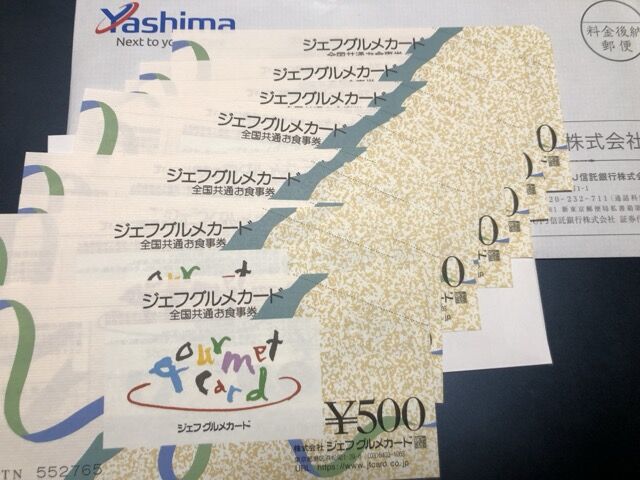 Yashima
Next to yo
料金後納
郵便
ジェフグルメカード
全国共通お食事券
ジェフグルメカード
ジェフグルメカード
ジェフグルメカード
全国共通お食事券
ジェフグルメカード
全国共通お食事券
ジェフグルメカード
全国共通お食事券
ジェフグルメカード
全国共通お食事券
gourmet
card
ジェフグルメカード
¥500
株式会社ジェフグルメカード
URL https://www.jfcard.co.jp
TN 552765
0
0
0
株式会社
J信託銀行株式会社
20-232-711
信託銀行株式会社 証券代